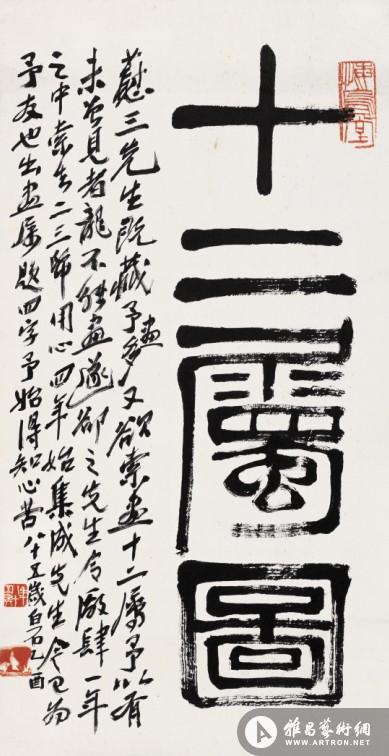 十二屬圖
蕙三先生既藏予畫多又欲索畫十二屬予以有
未曾見者龍不能畫遂卻之先生令廠肆一年
之中索去二三用心四年始集成先生今已為
予友也出畫屬題四字予始得知心苦八十五歲白石乙酉
悔烏堂
雅昌藝術網
ARTRON.NET